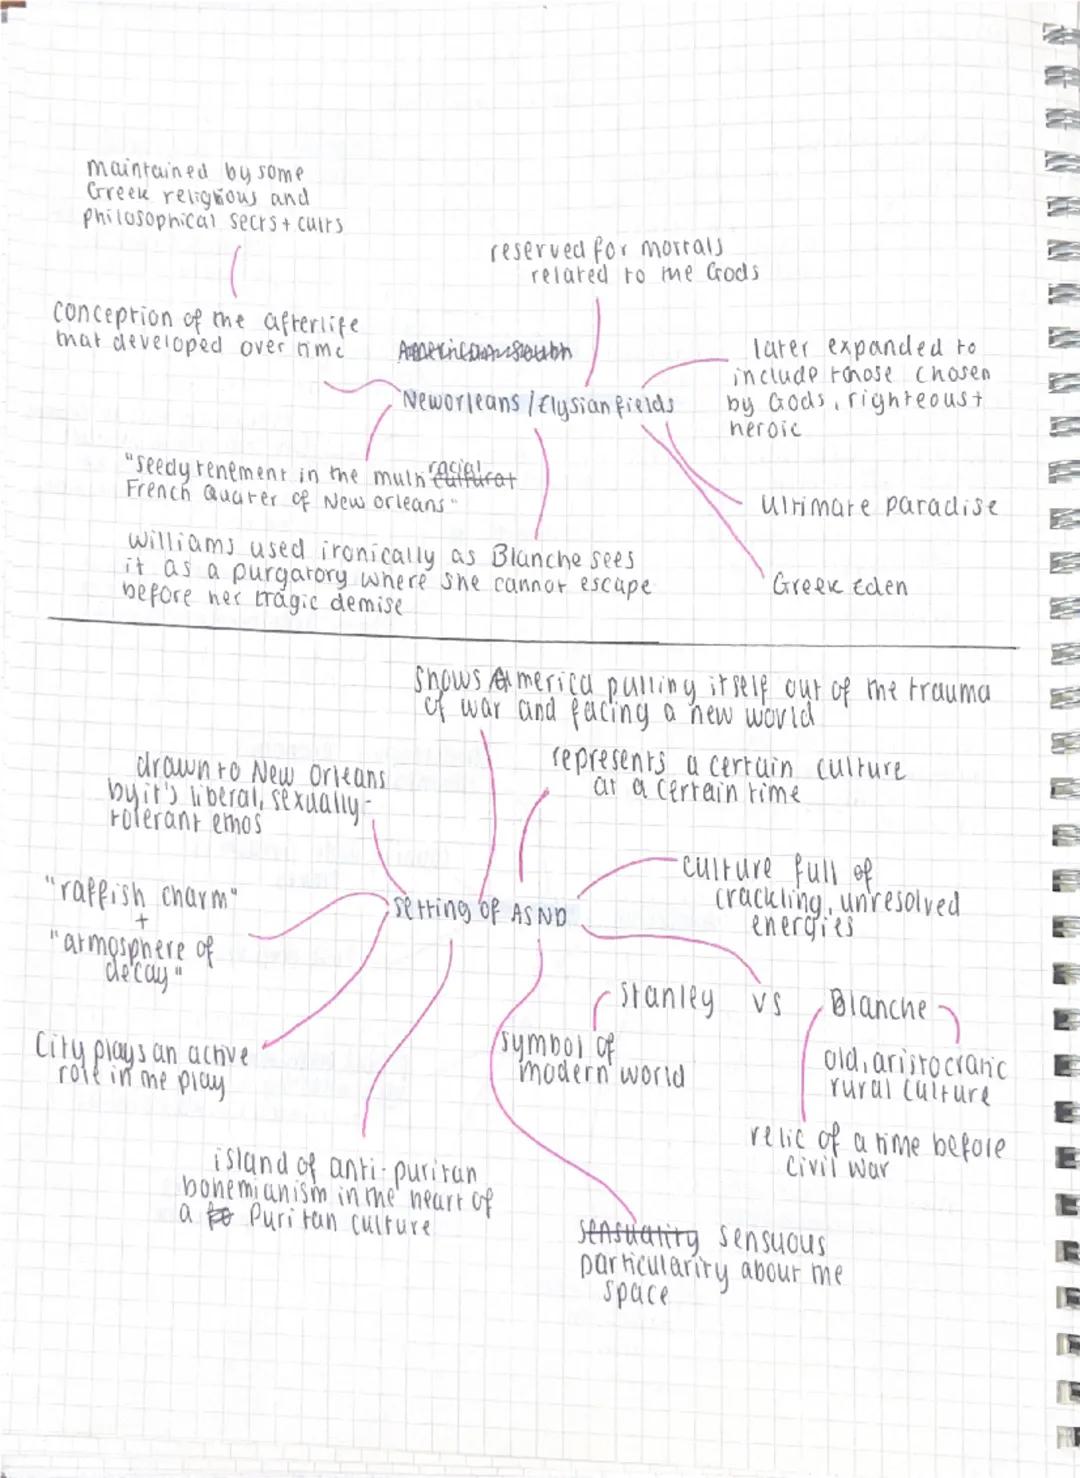 maintained by some
Greek religious and
philosophical sects + cults
reserved for mortals
related to the Gods
conception of the afterlife
that developed over time
American South
later expanded to
include those chosen
by Gods, righteous +
heroic
Neworleans / Elysian fields
"seedy tenement in the multi racial cultural
French Quarter of New orleans"
Ultimate paradise
Williams used ironically as Blanche sees
it as a purgatory where she cannot escape
before her tragic demise
Greek Eden
shows America pulling itself out of the trauma
of war and facing a new world
drawn to New Orleans
by it's liberal, sexually-
tolerant ethos
represents a certain culture
at a certain time
"raffish charm"
+
"atmosphere of
decay"
setting of ASND
culture full of
crackling, unresolved
energies
Stanley vs Blanche
City plays an active
role in the play
symbol of
modern world
old, aristocratic
rural culture
relic of a time before
civil war
island of anti-puritan
bohemianism in the heart of
a Puritan culture
sensuality sensuous
particularity about the
space